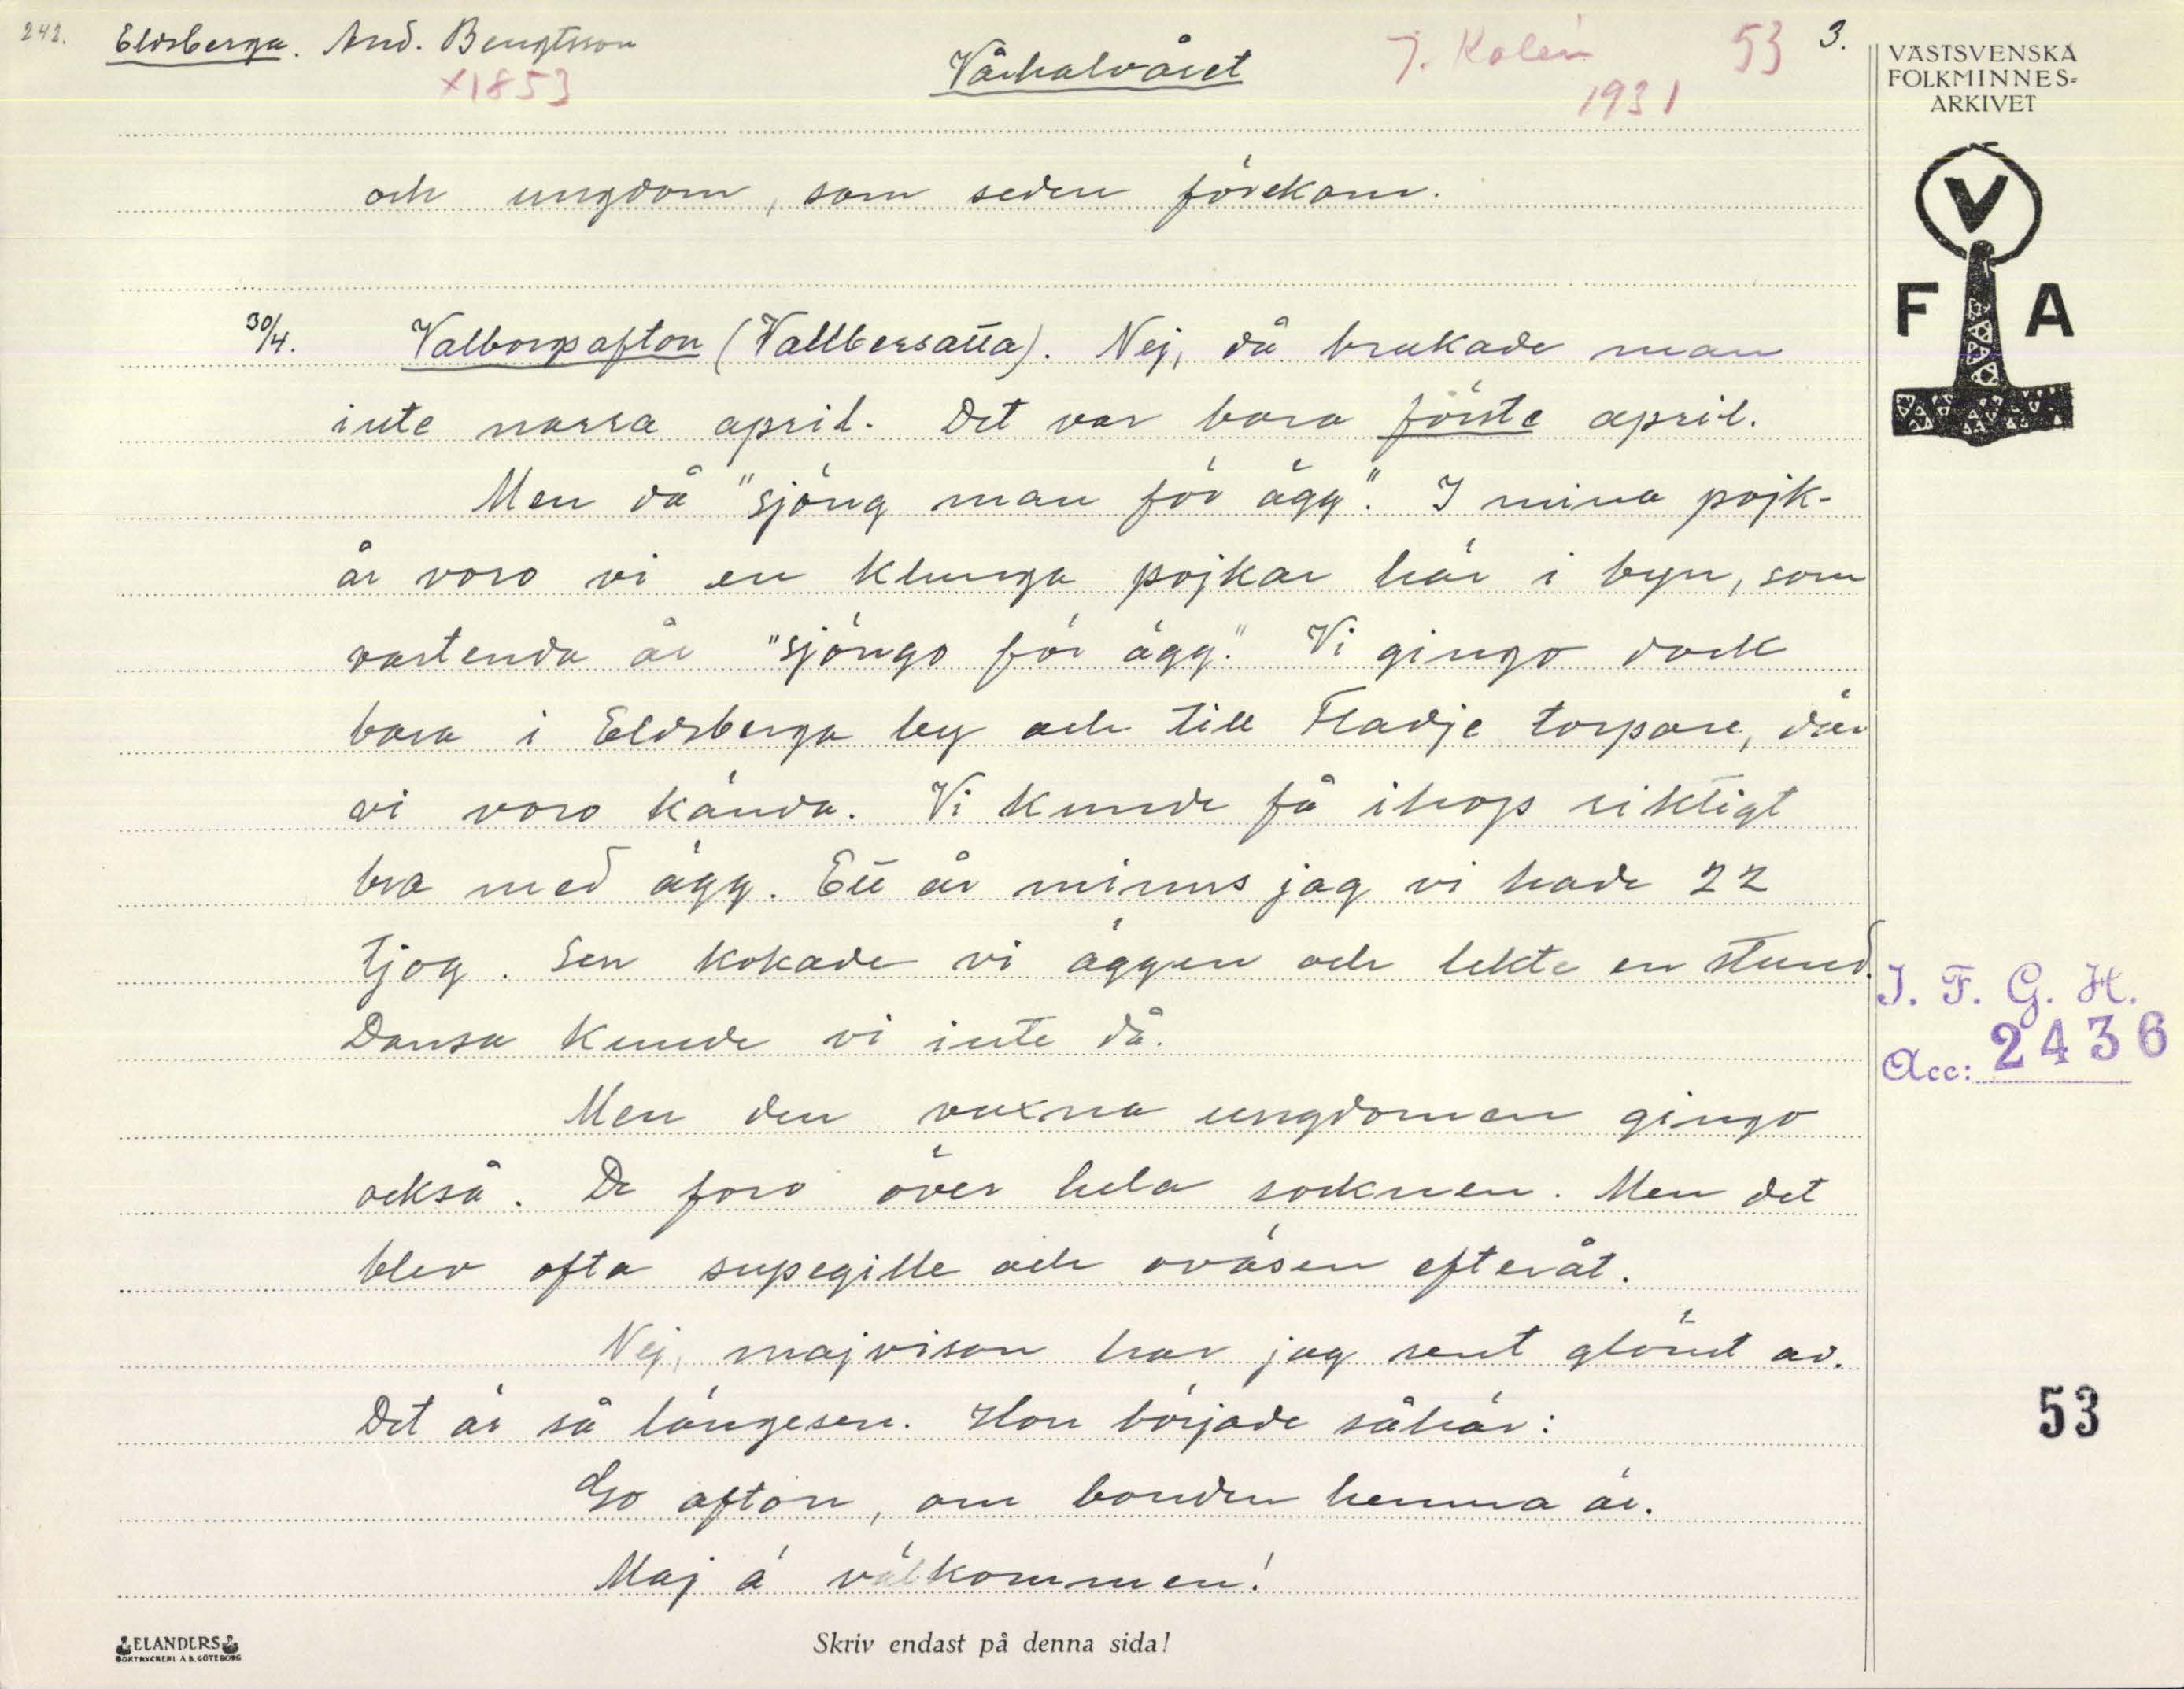 242. Eldsberga. And. Bengtsson
Vårhalvåret
J. Kalén 53 3.
×1853
1931
VÄSTSVENSKA
FOLKMINNES=
ARKIVET
V
F A
och ungdom, som seden förekom.
30/4. Valborgsafton (Vallbersatta). Nej, då brukade man
inte narra april. Det var bara förste april.
Men då "sjöng man för ägg". I mina pojk-
år voro vi en klunga pojkar här i byn, som
vartenda år "sjöngo för ägg." Vi gingo dock
bara i Eldsberga by och till Fladje torpare, där
vi voro kända. Vi kunde få ihop riktigt
bra med ägg. Ett år minns jag vi hade 22
tjog. Sen kokade vi äggen och lekte en stund.
Dansa kunde vi inte då.
Men den vuxna ungdomen gingo
också. De foro över hela socknen. Men det
blev ofta supegille och oväsen efteråt.
Nej, majvisan har jag rent glömt av.
Det är så längesen. Hon började såhär:
Go afton, om bonden hemma är.
Maj ä välkommen!
I. F. G. H.
Acc: 2436
53
ELANDERS
BOKTRYCKERI A.B. GÖTEBORG
Skriv endast på denna sida!